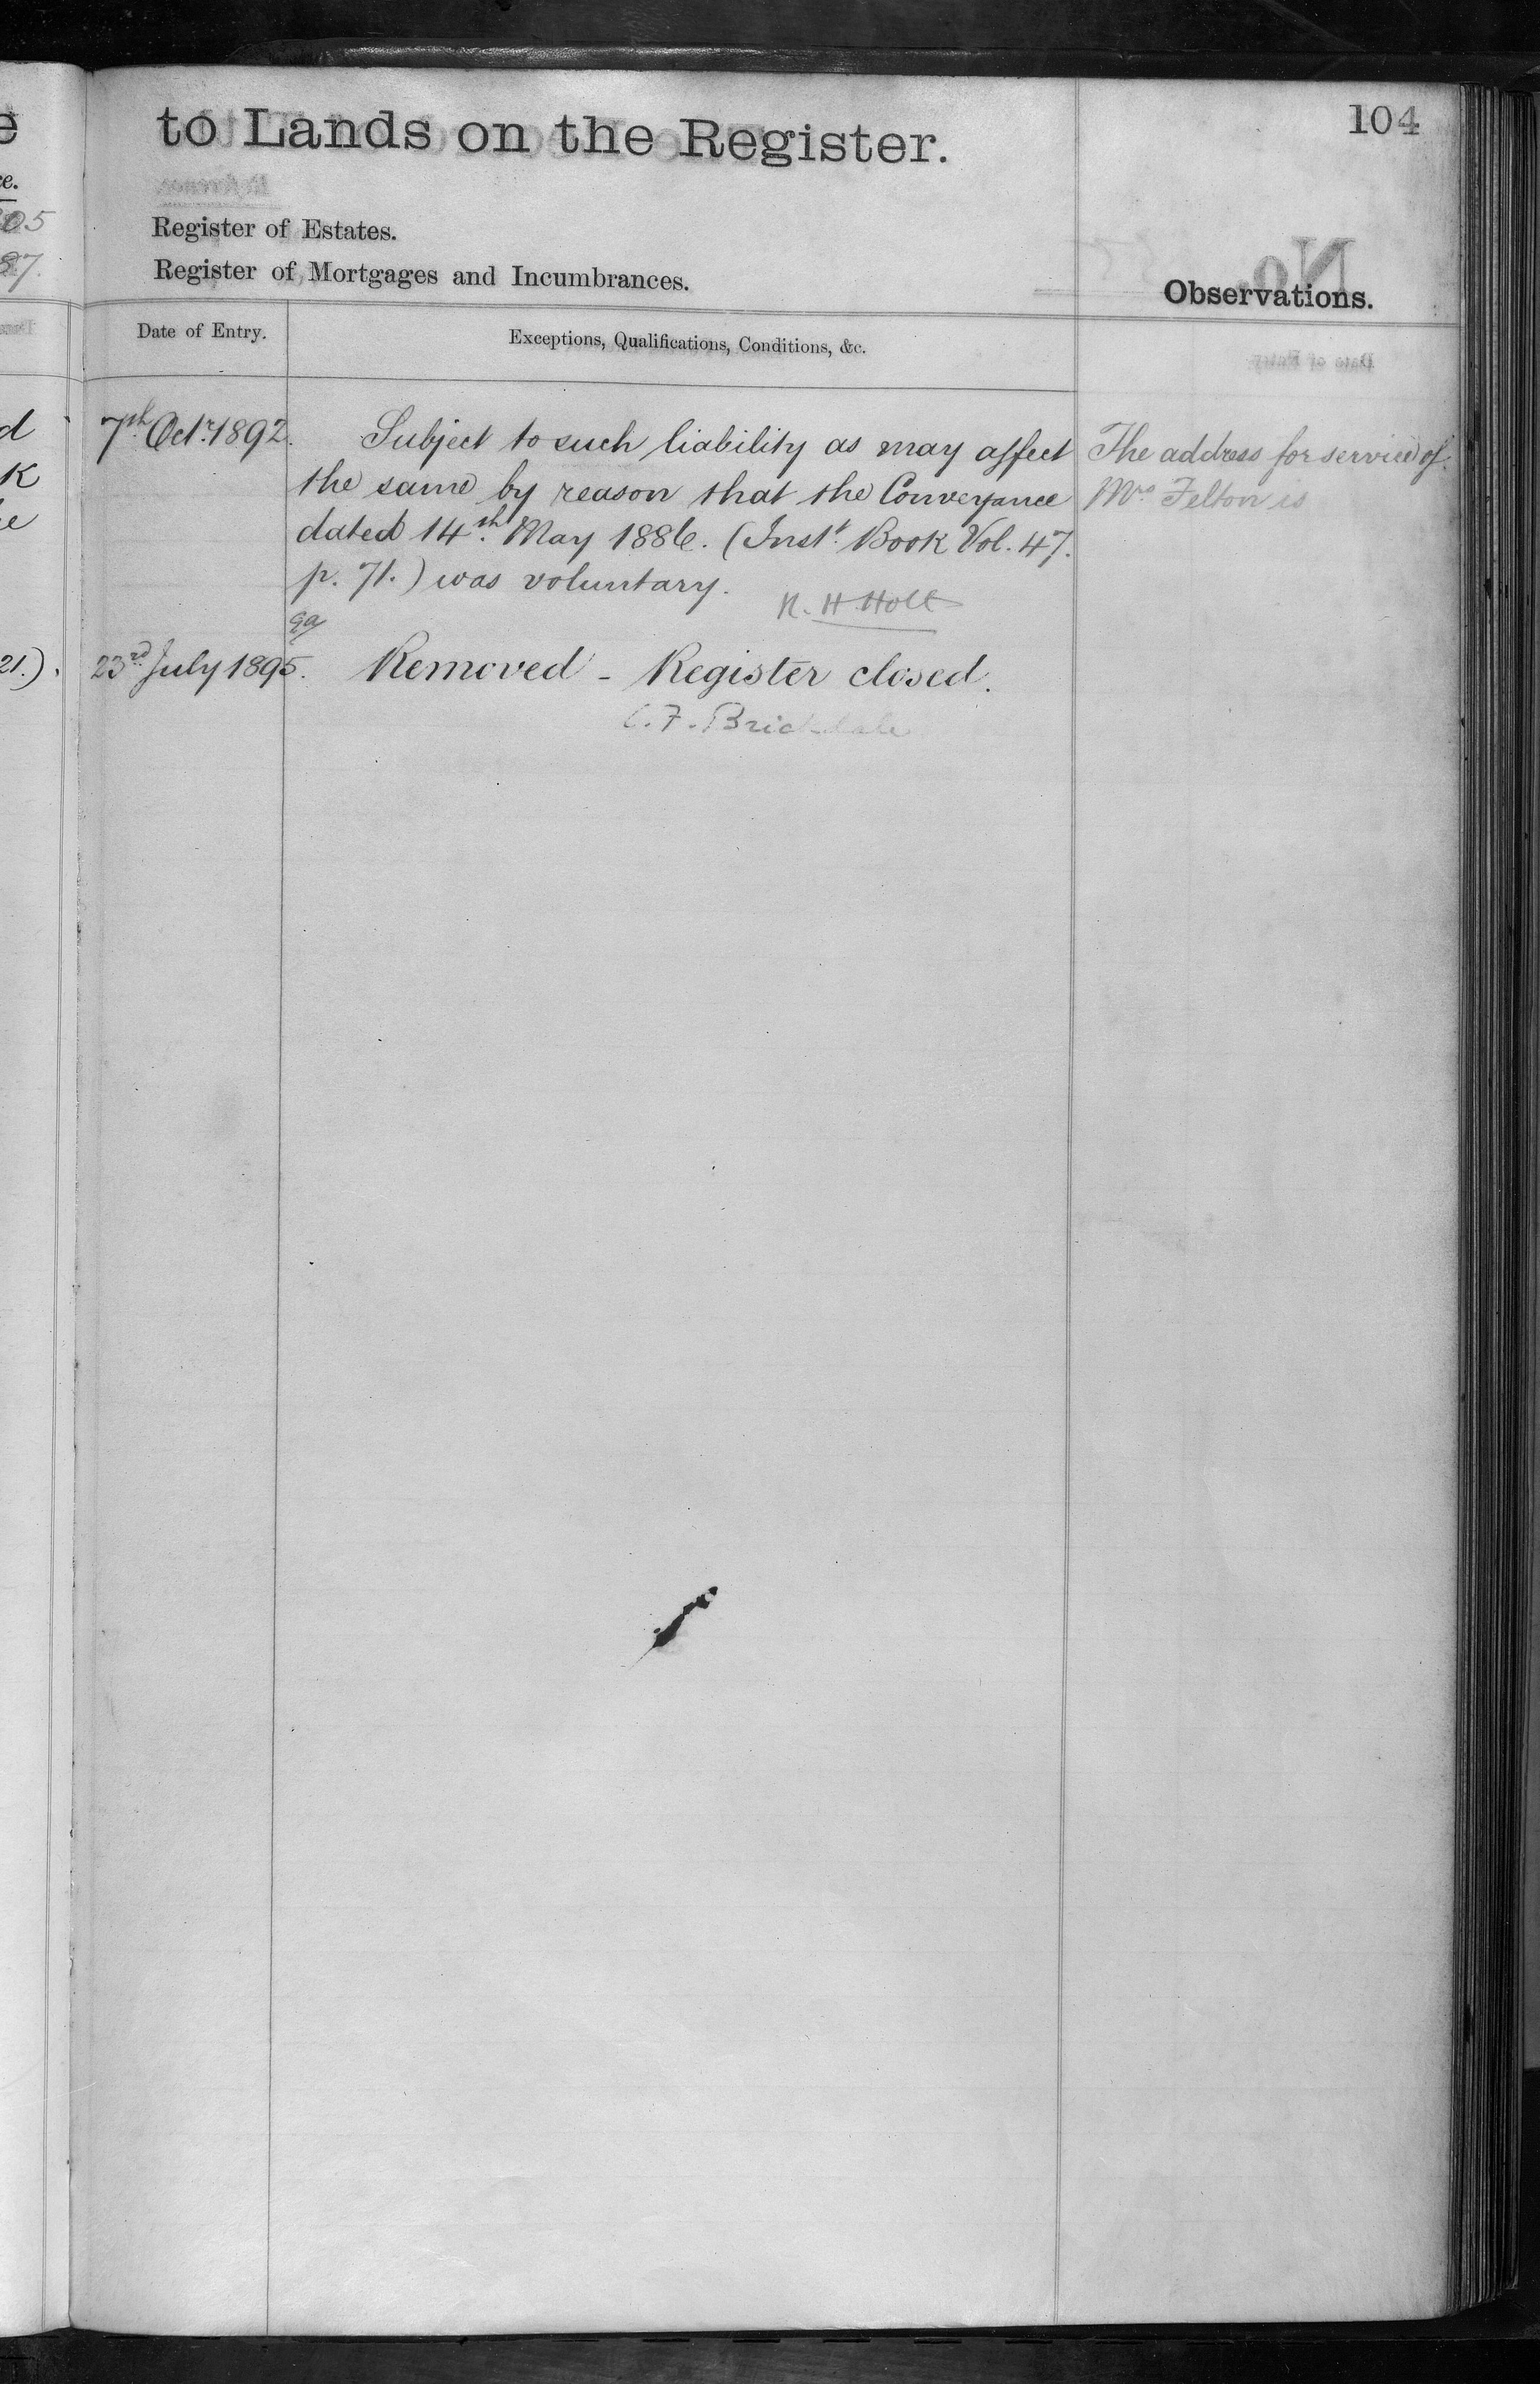 104
to Lands on the Register.
Register of Estates.
Register of Mortgages and Incumbrances.
Observations.
Date of Entry.
Exceptions, Qualifications, Conditions, &c.
7th Octr. 1892.
Subject to such liability as may affect
the same by reason that the Conveyance
dated 14th May 1886. (Inst. Book Vol. 47.
p. 71.) was voluntary.
R. H. Holt
The address for service of
Mrs. Felton is
23rd July 1895.
Removed - Register closed.
C. F. Brickdale
e
ce.
05
87.
d
K
e
21.).